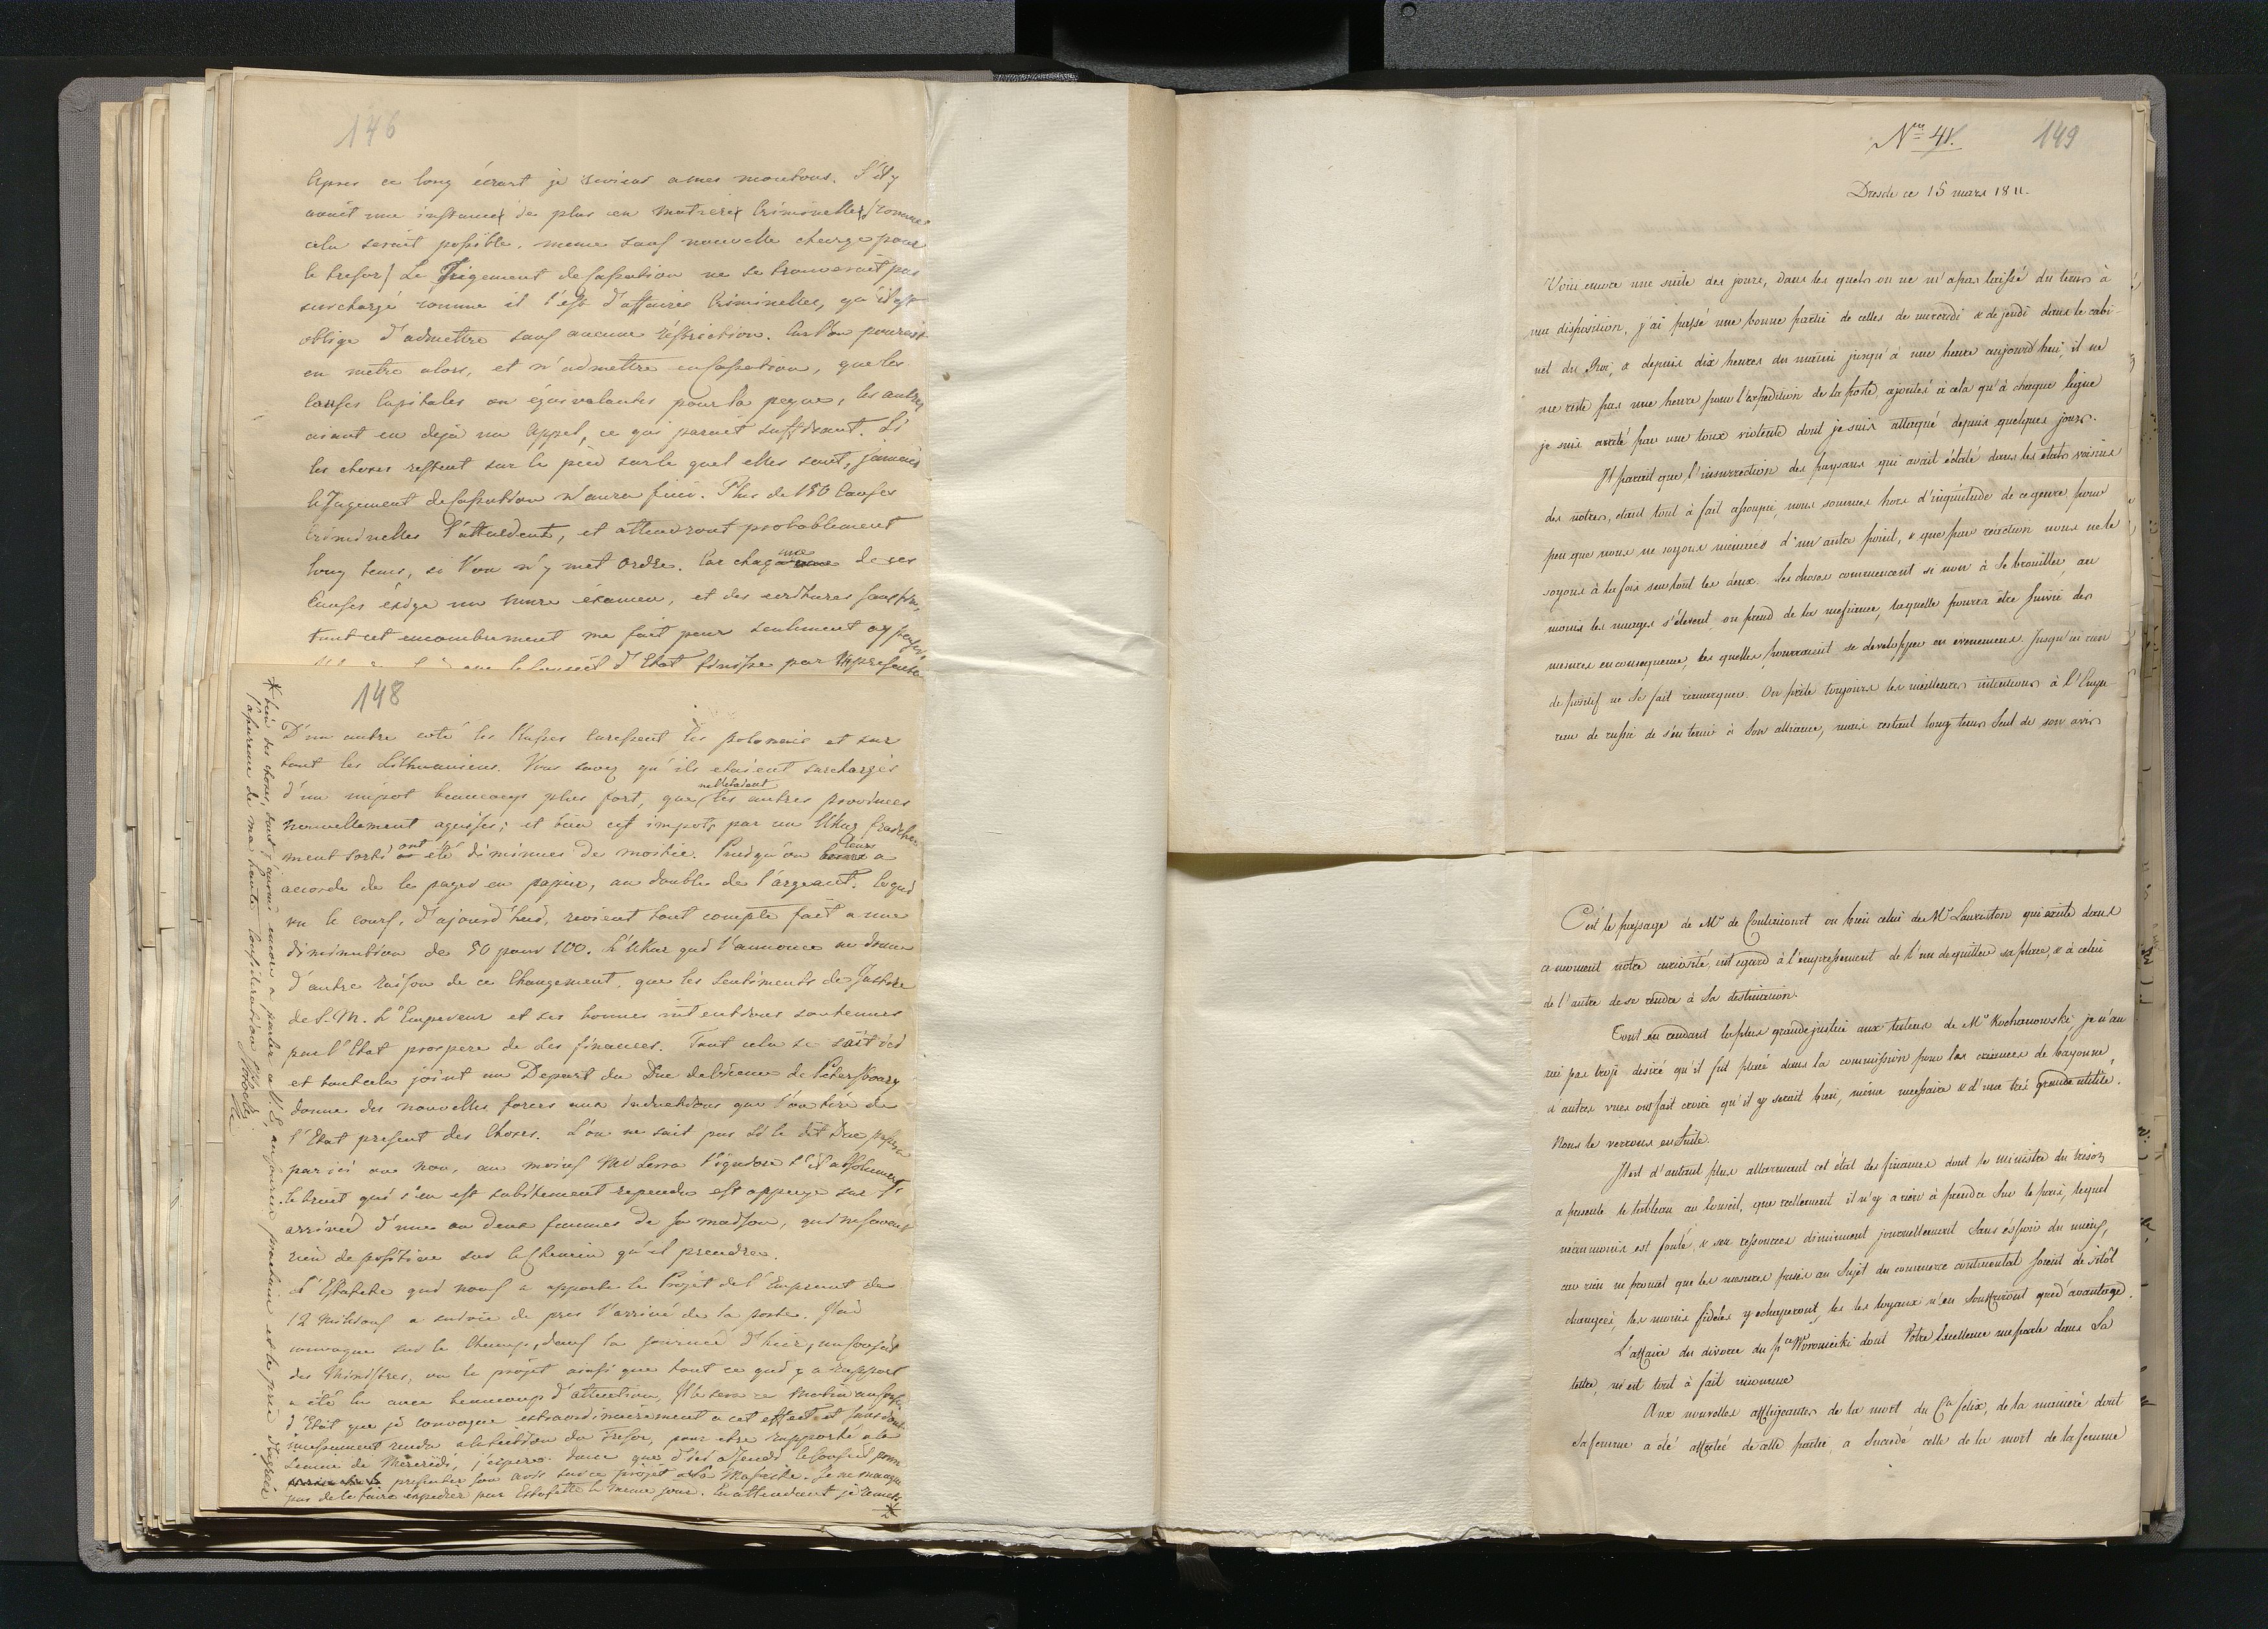 146
Apres ce long écart je reviens a mes moutons. S'il y
avait une instance de plus en matieres Criminelles (comme
cela serait possible, meme sans nouvelle charge pour
le tresor) Le Jugement de Cassation ne se trouverait pas
surchargé comme il l'est d'affaires Criminelles, qu'il est
obligé d'admettre sans aucune réstriction. Car l'on pourrait
en mettre alors, et n'admettre en Cassation, que les
Causes Capitales ou équivalentes pour la peyne, les autres
aiant eu deja un Appel, ce qui parait suffisant. Si
les choses restent sur le pied sur le quel elles sont, jamais
le Jugement de Cassation n'aura fini. Plus de 150 Causes
Criminelles l'attendent, et attendront probablement
long tems, si l'on n'y met Ordre. Car chaqune de ces
Causes éxige un mure éxamen, et des ecritures sans fin,
tout cet encombrement me fait peur seulement a y penser
que le Conseil d'Etat finisse par représenter
148
D'un autre coté les Russes caressent les polonais et sur
tout les Lithuaniens. Vous savez qu'ils etaient surchargés
d'un impot beaucoup plus fort, que ne l'etaient les autres provinces
nouvellement aquises; et bien cet impots par un Ukas fraichement
ment sorti ont été diminues de moitié. Puisqu'on leurs a
accordé de les payer en papier, au double de l'argeant. Ce qui
vu le cours, d'aujourd'hui, revient tout compte fait a une
diminution de 50 pour 100. L'Ukas qui l'annonce ne donne
d'autre raison de ce Changement, que les sentiments de Justice
de S. M. L'Empereur et ses bonnes intentions soutenues
par l'Etat prospere de ses finances. Tout cela se sait ici
et tout cela joint au Depart du Duc de Vicence de Petersbourg
donne des nouvelles forces aux inductions que l'on tire de
l'Etat present des Choses. L'on ne sait pas si le dit Duc passera
par ici ou non, au moins Mr Serra l'ignore t'il absolument.
Le bruit qui s'en est subitement rependu est appuyé sur l'
arrivée d'une ou deux femmes de sa maison, qui ne savent
rien de positive sur le Chemin qu'il prendra.
L'Estafette qui nous a apporté le Projet de l'Emprunt de
12 Millions a suivie de pres l'arrivé de la poste. J'ai
convoqué sur le Champ, dans la journée d'hier, un Conseil
des Ministres, ou le projet ainsi que tout ce qui y a rapport
a été lu avec beaucoup d'attention, Il le sera ce Matin au Conseil
d'Etat que je convoque extraordinairement a cet effect et sans doute
incessamment rendu a la Section du Tresor, pour etre rapporté a la
Seance de Mercredi, j'espere donc que d'ici a Jeudi le Conseil pourra
presenter son avis sur ce projet a Sa Majesté. Je ne manquerai
pas de le faire expedier par Estafette le meme jour. En attendant je remets
*
* bien des choses, dont j'aurai encore a parler a V. E. au courier prochain et la prie d'agréer
l'assurance de ma haute Consideration
Nro 41.
149
Dresde ce 15 mars 1811.
Voici encore une suite des jours, dans les quels on ne m'a pas laissé du tems à
ma disposition, j'ai passé une bonne partie de celles de mercredi & de jeudi dans le cabi-
net du Roi, & depuis dix heures du matin jusqu'à une heure aujourd'hui, il ne
me reste pas une heure pour l'expedition de la poste ajoutés à cela qu'à chaque ligne
je suis arreté par une toux violente dont je suis attaqué depuis quelques jours.
Il parait que l'insurrection des paysans qui avait éclaté dans les etats voisins
des notres, etant tout à fait assoupie, nous sommes hors d'inquiétude de ce genre, pour
peu que nous ne soyons menacés d'un autre point, & que par reaction nous ne le
soyons à la fois sur tout les deux. Les choses commencent si non à se brouiller, au
moins les nuages s'élevent, on prend de la mefiance, laquelle pourra être suivie des
mesures en consequence, les quelles pourraient se developper en evenemens. Jusqu'ici rien
de positif ne se fait remarquer. On prête toujours les meilleures intentions à l'Empe-
reur de russie de s'en tenir à son alliance, mais restant long tems seul de son avis
C'est le passage de Mr de Coulincourt ou bien celui de Mr Lauriston qui excite dans
ce moment notre curiosité, eut egard à l'empressement de l'un de quitter sa place, & à celui
de l'autre de se rendre à sa destination.
Tout en rendant la plus grande justice aux talens de Mr Kochanowski, je n'au
rai pas trop desiré qu'il fut placé dans la commission pour les creances de bayonne,
d'autres vues ont fait croire qu'il y serait bien, même necessaire & d'une très grande utilité.
Nous le verrons en suite.
Il est d'autant plus allarmant cet état des finances dont le ministre du tresor
a presenté le tableau au Conseil, que reellement il n'y a rien à prendre sur le pais, lequel
néanmoins est foulé, & ses ressources diminuent journellement sans espoir du mieux,
car rien ne promet que les mesures prises au sujet du commerce continental soient de sitôt
changées, les moins fideles y echaperont, les loyaux n'en souffriront que d'avantage.
L'affaire du divorce du pce Woroniecki dont Votre Excellence me parle dans sa
lettre, m'est tout à fait inconnue
Aux nouvelles affligeantes de la mort du Cte felix, de la maniere dont
sa femme a été affectée de cette perte, a succedé celle de la mort de la femme